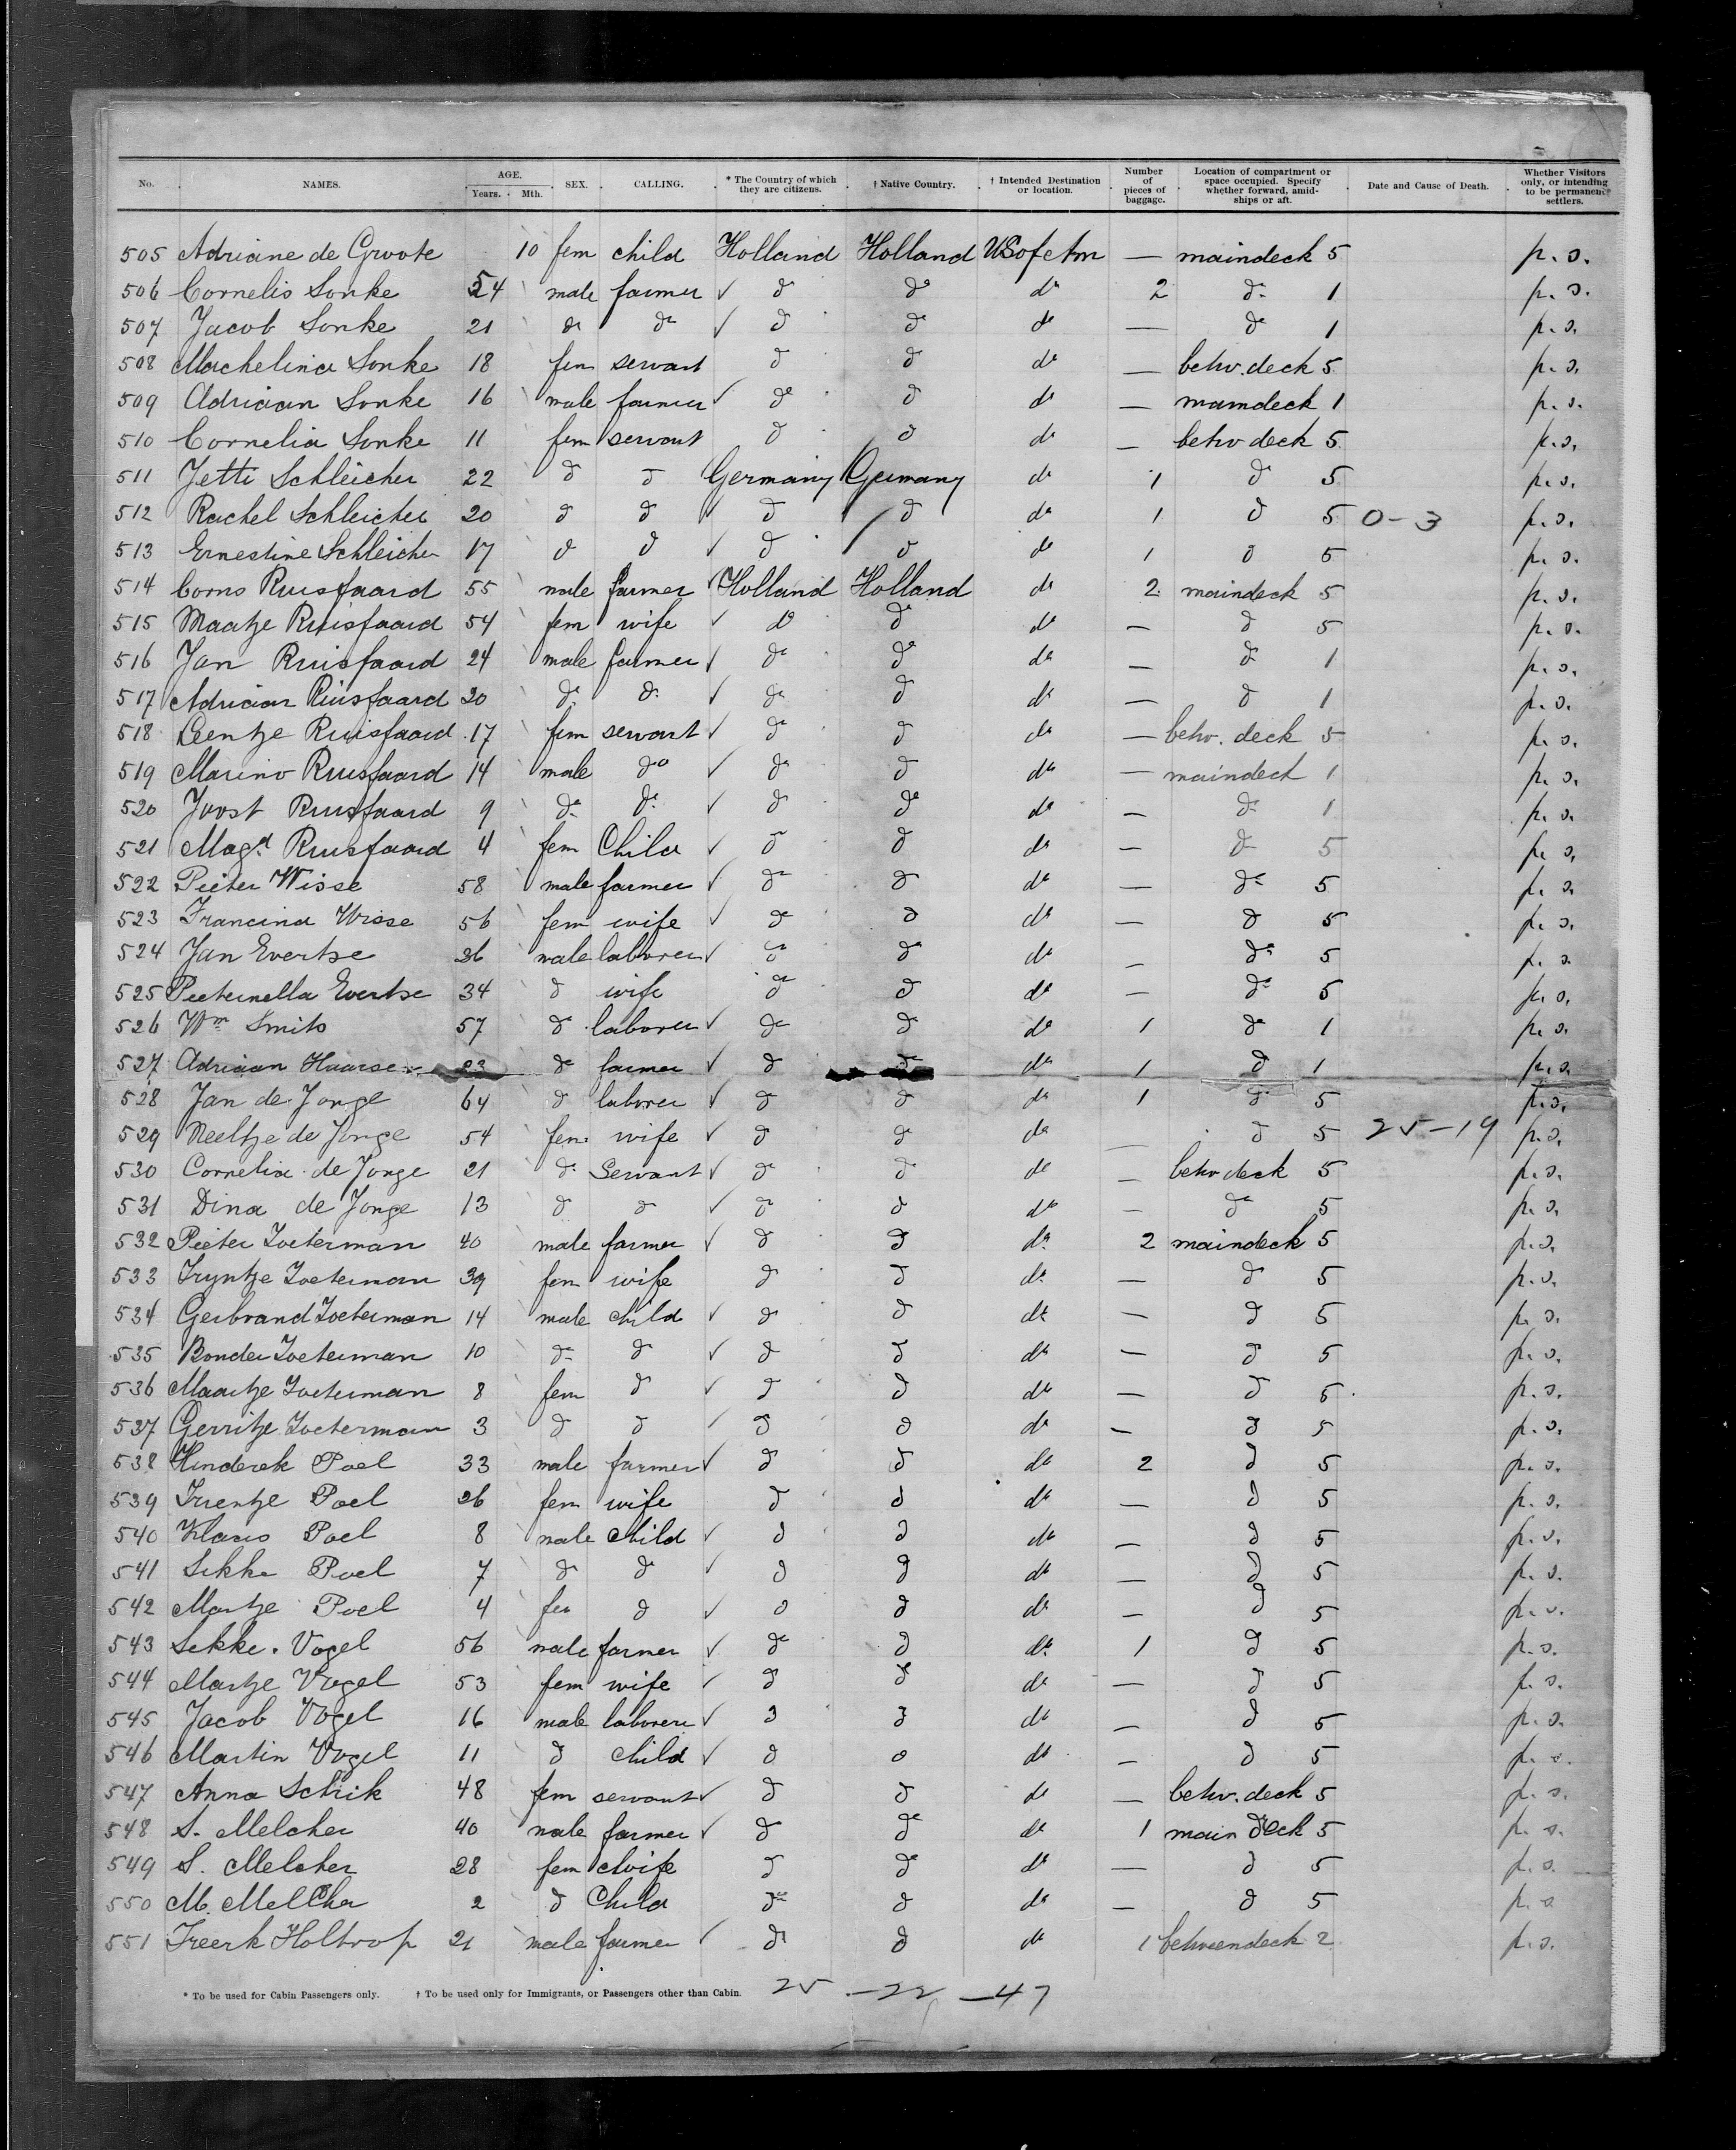 No. NAMES. AGE. Years. Mth. SEX. CALLING. * The Country of which they are citizens. † Native Country. † Intended Destination or location. Number of pieces of baggage. Location of compartment or space occupied. Specify whether forward, amidships or aft. Date and Cause of Death. Whether Visitors only, or intending to be permanent settlers.
505 Adriane de Groote 10 fem child Holland Holland US of Am — maindeck 5 p. s.
506 Cornelis Sonke 54 male farmer ✓ do do do 2 do 1 p. s.
507 Jacob Sonke 21 do do ✓ do do do — do 1 p. s.
508 Machelina Sonke 18 fem servant do do do — betw. deck 5 p. s.
509 Adriaan Sonke 16 male farmer ✓ do do do — maindeck 1 p. s.
510 Cornelia Sonke 11 fem servant do do do — betw deck 5 p. s.
511 Jette Schleicher 22 do do Germany Germany do 1 do 5 p. s.
512 Rachel Schleicher 20 do do ✓ do do do 1 do 5 0-3 p. s.
513 Ernestine Schleicher 17 do do ✓ do do do 1 do 5 p. s.
514 Corns Ruisfaard 55 male farmer ✓ Holland Holland do 2 maindeck 5 p. s.
515 Maatje Ruisfaard 54 fem wife ✓ do do do — do 5 p. s.
516 Jan Ruisfaard 24 male farmer ✓ do do do — do 1 p. s.
517 Adriaan Ruisfaard 20 do do ✓ do do do — do 1 p. s.
518 Leentje Ruisfaard 17 fem servant ✓ do do do — betw. deck 5 p. s.
519 Marino Ruisfaard 14 male do ✓ do do do — maindeck 1 p. s.
520 Joost Ruisfaard 9 do do ✓ do do do — do 1 p. s.
521 Magd Ruisfaard 4 fem Child ✓ do do do — do 5 p. s.
522 Pieter Wisse 58 male farmer ✓ do do do — do 5 p. s.
523 Francina Wisse 56 fem wife ✓ do do do — do 5 p. s.
524 Jan Evertse 36 male laborer ✓ do do do — do 5 p. s.
525 Pieternella Evertse 34 do wife do do do — do 5 p. s.
526 Wm Smits 57 do laborer ✓ do do do 1 do 1 p. s.
527 Adriaan Haarse 23 do farmer ✓ do do do 1 do 1 p. s.
528 Jan de Jonge 64 do laborer ✓ do do do 1 do 5 p. s.
529 Neeltje de Jonge 54 fem wife ✓ do do do — do 5 25-19 p. s.
530 Cornelia de Jonge 21 do Servant ✓ do do do — betw deck 5 p. s.
531 Dina de Jonge 13 do do ✓ do do do — do 5 p. s.
532 Pieter Zoeterman 40 male farmer ✓ do do do 2 maindeck 5 p. s.
533 Tryntje Zoeterman 39 fem wife do do do — do 5 p. s.
534 Gerbrand Zoeterman 14 male child ✓ do do do — do 5 p. s.
535 Bonder Zoeterman 10 do do ✓ do do do — do 5 p. s.
536 Maartje Zoeterman 8 fem do ✓ do do do — do 5 p. s.
537 Gerritje Zoeterman 3 do do ✓ do do do — do 5 p. s.
538 Hinderek Poel 33 male farmer ✓ do do do 2 do 5 p. s.
539 Trientje Poel 26 fem wife do do do — do 5 p. s.
540 Klaas Poel 8 male child ✓ do do do — do 5 p. s.
541 Sikke Poel 7 do do ✓ do do do — do 5 p. s.
542 Martje Poel 4 fem do ✓ do do do — do 5 p. s.
543 Sekke Vogel 56 male farmer ✓ do do do 1 do 5 p. s.
544 Martje Vogel 53 fem wife ✓ do do do — do 5 p. s.
545 Jacob Vogel 16 male laborer ✓ do do do — do 5 p. s.
546 Martin Vogel 11 do child ✓ do do do — do 5 p. s.
547 Anna Schrik 48 fem servant ✓ do do do — betw. deck 5 p. s.
548 S. Melcher 40 male farmer ✓ do do do 1 main deck 5 p. s.
549 S. Melcher 28 fem wife do do do — do 5 p. s.
550 M. Melcher 2 do Child do do do — do 5 p. s.
551 Freerk Holtrop 21 male farmer ✓ do do do 1 betweendeck 2 p. s.
* To be used for Cabin Passengers only. † To be used only for Immigrants, or Passengers other than Cabin. 25 - 22 - 47